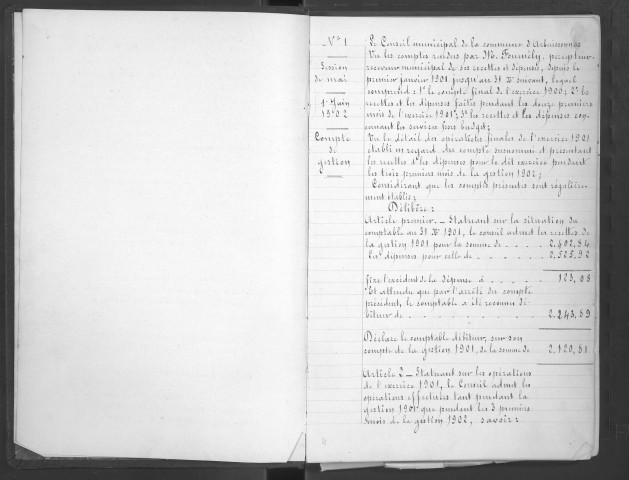 N° 1
Session
de mai
1er Juin
1902
Compte
de
gestion
Le Conseil municipal de la commune d'Arbuissonnas
Vu les comptes rendus par M. Fournély, percepteur-
receveur municipal de ses recettes et dépenses, depuis le
premier janvier 1901 jusqu'au 31 Xbre suivant, lequel
comprend : 1° le compte final de l'exercice 1900; 2° les
recettes et les dépenses faites pendant les douze premiers
mois de l'exercice 1901; 3° les recettes et les dépenses con-
cernant les services hors budget;
Vu le détail des opérations finales de l'exercice 1901
établi en regard du compte susnommé et présentant
les recettes et les dépenses pour le dit exercice pendant
les trois premiers mois de la gestion 1902;
Considérant que les comptes présentés sont régulière-
ment établis;
Délibère :
Article premier. - Statuant sur la situation du
comptable au 31 Xbre 1901, le conseil admet les recettes de
la gestion 1901 pour la somme de - - - - 2.402,84
Les dépenses pour celle de - - - - - - 2.525,92
fixe l'excédent de la dépense à - - - - - 123,08
Et attendu que par l'arrêté du compte
précédent, le comptable a été reconnu dé-
biteur de - - - - - - - - - 2.243,89
Déclare le comptable débiteur, sur son
compte de la gestion 1901, de la somme de 2.120,81
Article 2 - Statuant sur les opérations
de l'exercice 1901, le Conseil admet les
opérations effectuées tant pendant la
gestion 1901 que pendant les 3 premiers
mois de la gestion 1902, savoir :